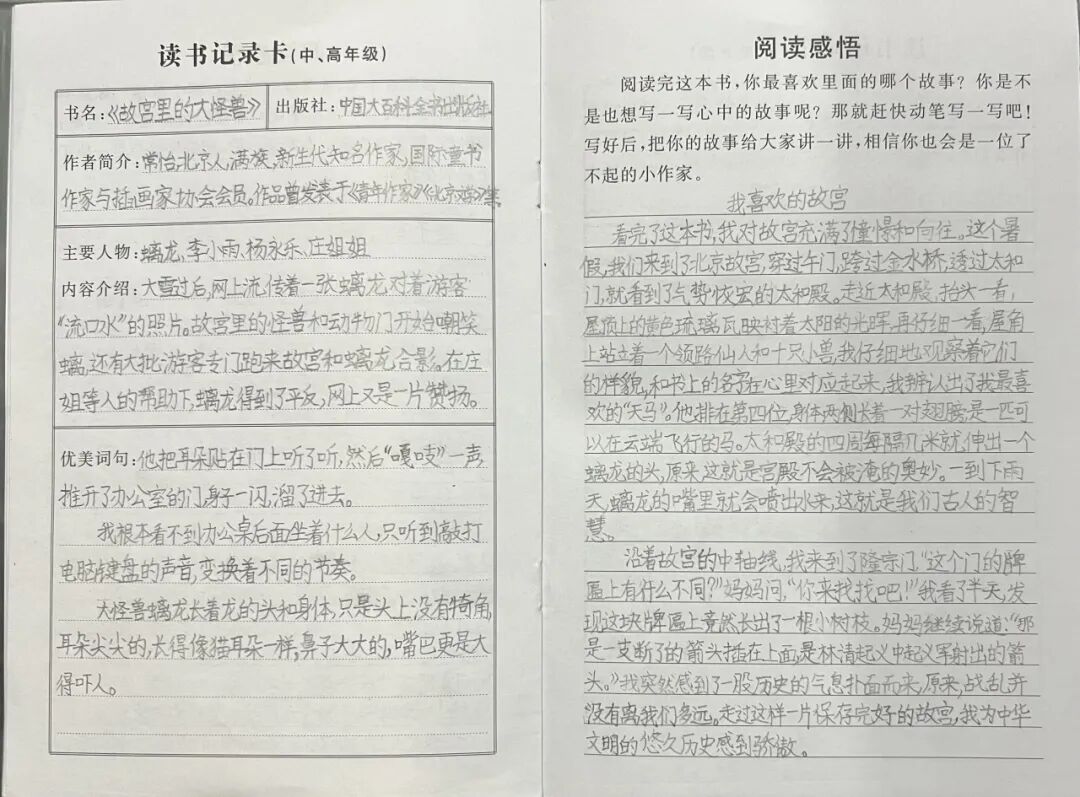 读书记录卡(中、高年级)
书名:《故宫里的大怪兽》
出版社:中国大百科全书出版社
作者简介:常怡,北京人,满族,新生代知名作家,国际童书
作家与插画家协会会员。作品曾发表于《青年作家》《北京文学》等
主要人物:螭龙、李小雨、杨永乐、庄姐姐
内容介绍:大雪过后,网上流传着一张螭龙对着游客
“流口水”的照片。故宫里的怪兽和动物门开始嘲笑
螭,还有大批游客专门跑来故宫和螭龙合影。在庄
姐等人的帮助下,螭龙得到了平反,网上又是一片赞扬。
优美词句:他把耳朵贴在门上听了听,然后“嘎吱”一声,
推开了办公室的门,身子一闪,溜了进去。
我根本看不到办公桌后面坐着什么人,只听到敲打
电脑键盘的声音,变换着不同的节奏。
大怪兽螭龙长着龙的头和身体,只是头上没有犄角,
耳朵尖尖的,长得像猫耳朵一样,鼻子大大的,嘴巴更是大
得吓人。
阅读感悟
阅读完这本书,你最喜欢里面的哪个故事?你是不
是也想写一写心中的故事呢?那就赶快动笔写一写吧!
写好后,把你的故事给大家讲一讲,相信你也会是一位了
不起的小作家。
我喜欢的故宫
看完了这本书,我对故宫充满了憧憬和向往。这个暑
假,我们来到了北京故宫,穿过午门,跨过金水桥,透过太和
门,就看到了气势恢宏的太和殿。走近太和殿,抬头一看,
屋顶上的黄色琉璃瓦映衬着太阳的光晖,再仔细一看,屋角
上站立着一个领路仙人和十只小兽,我仔细地观察着它们
的样貌,和书上的名字在心里对应起来,我辨认出了我最喜
欢的“天马”。他排在第四位,身体两侧长着一对翅膀,是一匹可
以在云端飞行的马。太和殿的四周每隔几米就伸出一个
螭龙的头,原来,这就是宫殿不会被淹的奥妙。一到下雨
天,螭龙的嘴里就会喷出水来,这就是我们古人的智
慧。
沿着故宫的中轴线,我来到了隆宗门。“这个门的牌
匾上有什么不同?”妈妈问,“你来找找吧!”我看了半天,发
现这块牌匾上竟然长出了一根小树枝。妈妈继续说道:“那
是一支断了的箭头插在上面,是林清起义中起义军射出的箭
头。”我突然感到了一股历史的气息扑面而来,原来,战乱并
没有离我们多远。走过这样一片保存完好的故宫,我为中华
文明的悠久历史感到骄傲。